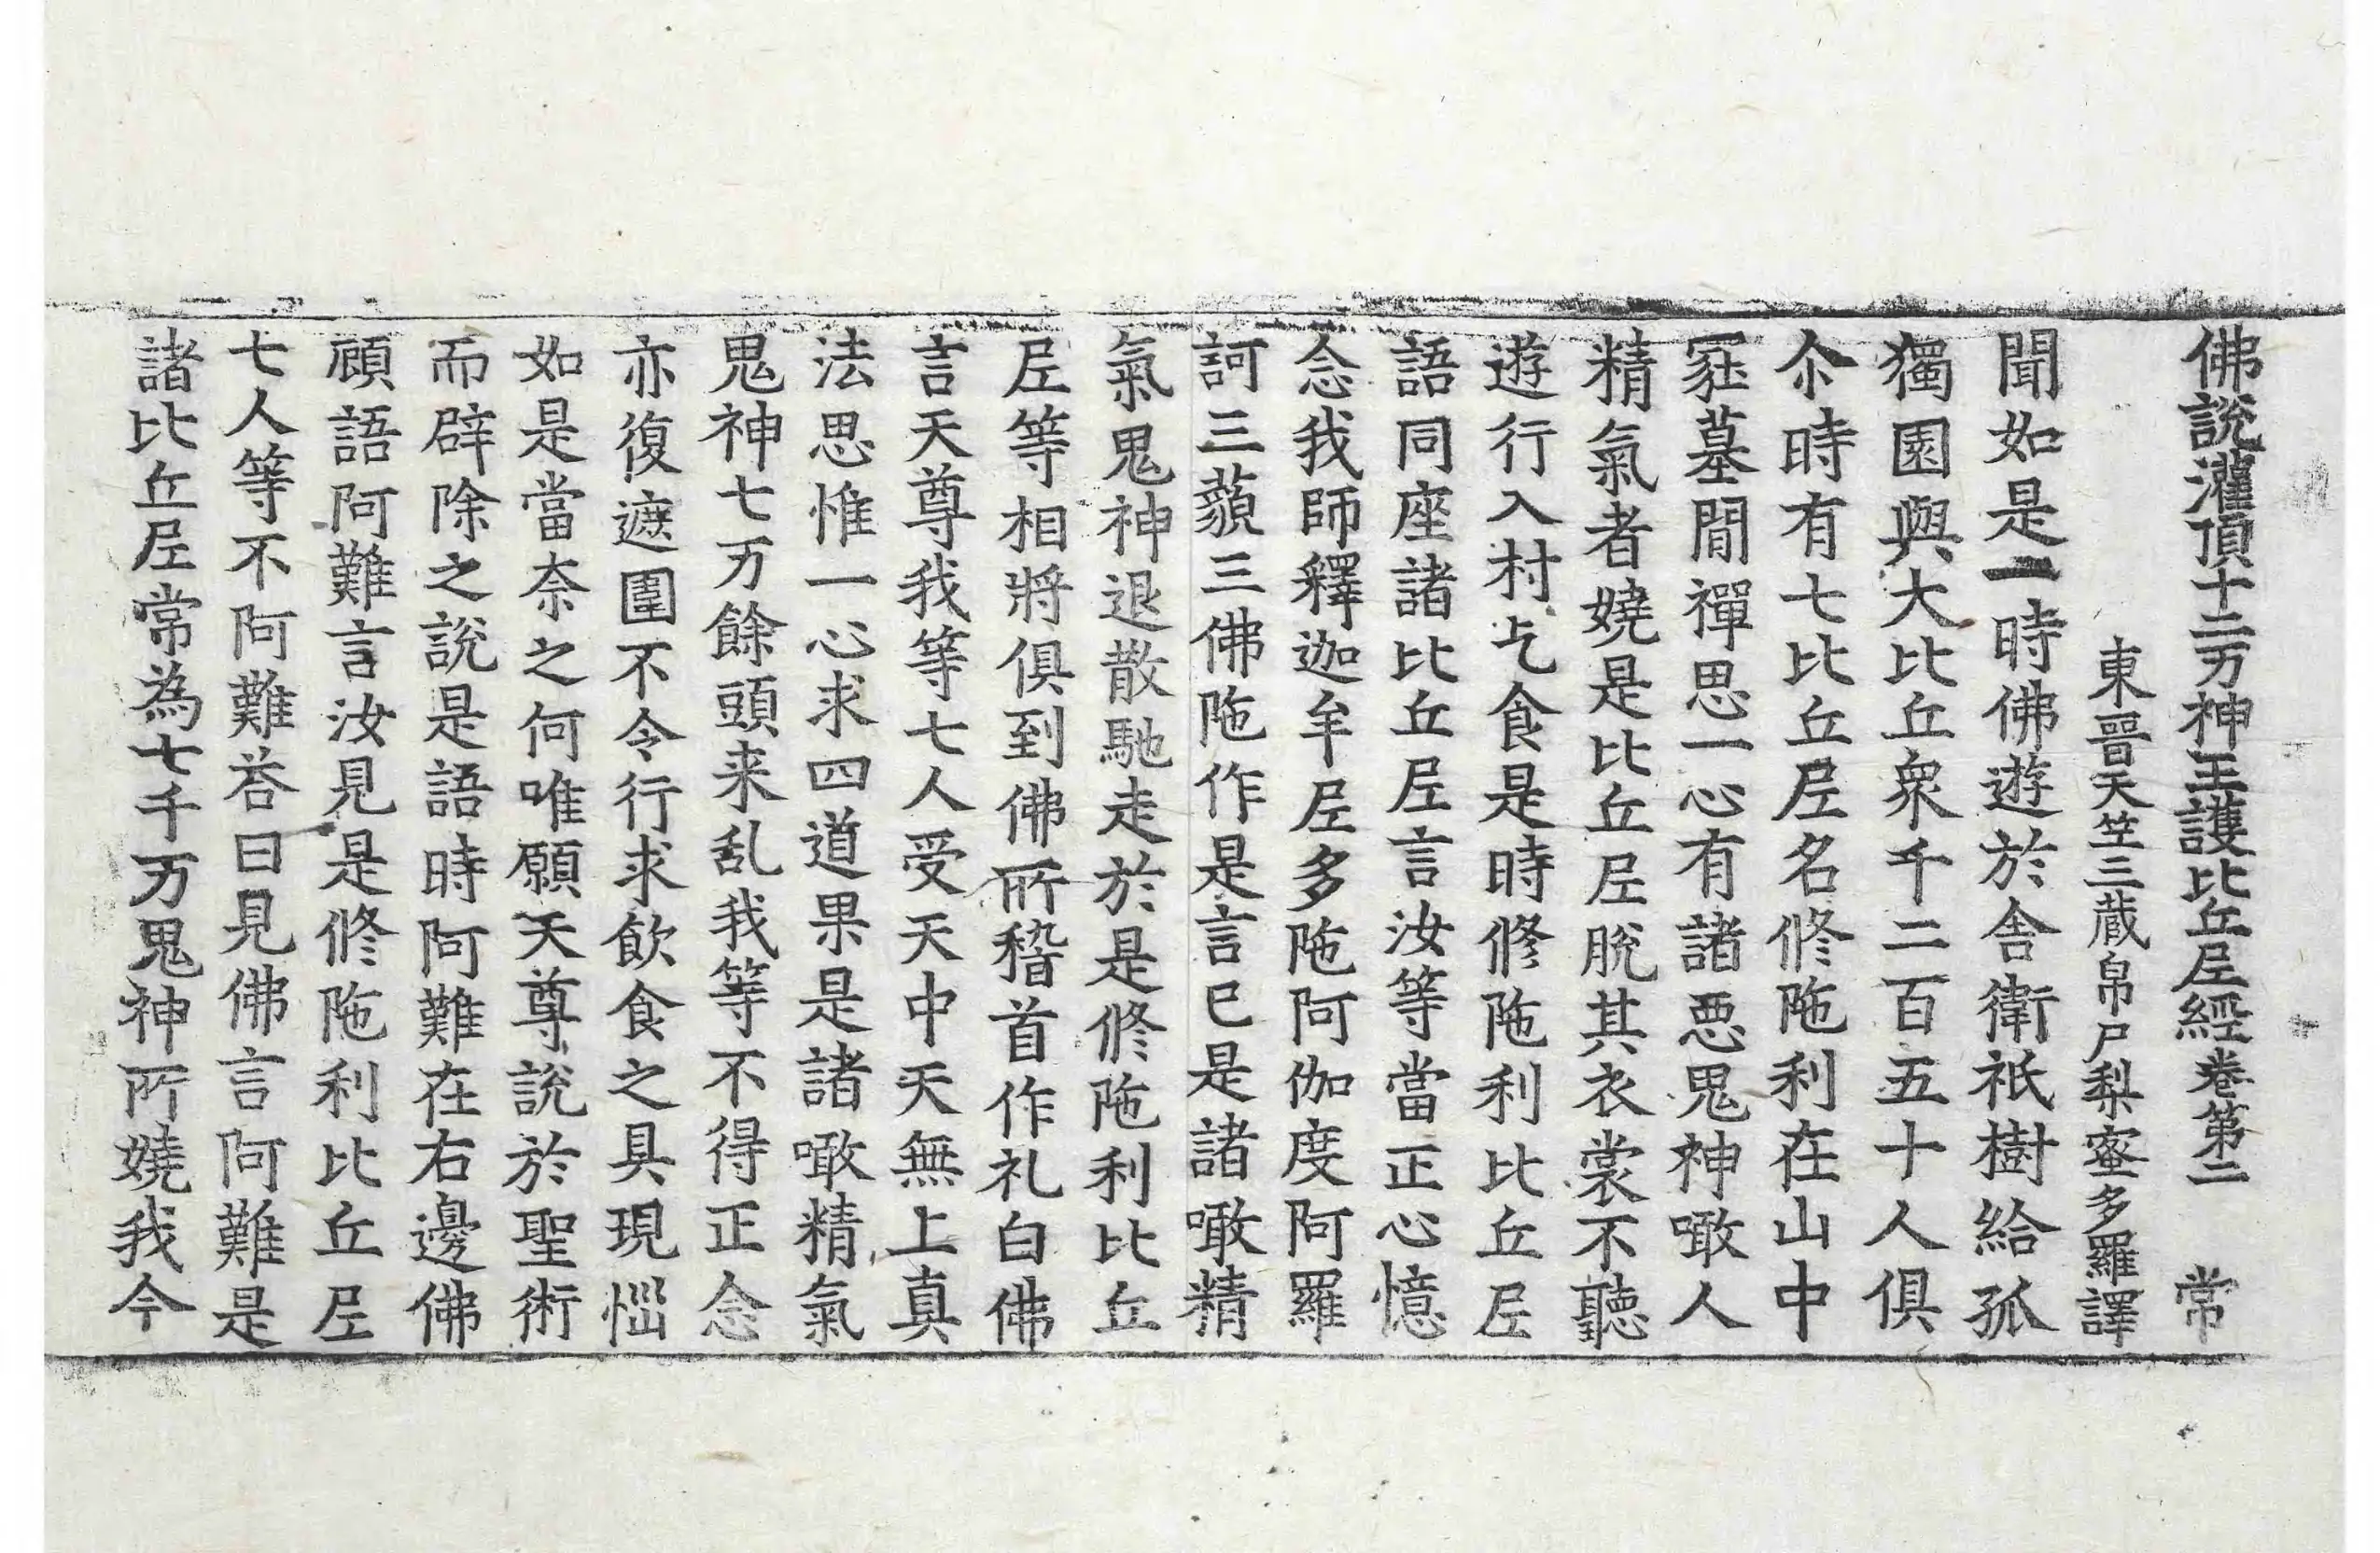 佛說灌頂十二万神王護比丘尼經卷第二 常
東晉天竺三藏帛尸梨蜜多羅譯
聞如是一時佛遊於舍衛祇樹給孤
獨園與大比丘衆千二百五十人俱
尒時有七比丘尼名修陁利在山中
冢墓間禪思一心有諸惡鬼神噉人
精氣者嬈是比丘尼脫其衣裳不聽
遊行入村乞食是時修陁利比丘尼
語同座諸比丘尼言汝等當正心憶
念我師釋迦牟尼多陁阿伽度阿羅
訶三藐三佛陁作是言已是諸噉精
氣鬼神退散馳走於是修陁利比丘
尼等相將俱到佛所稽首作礼白佛
言天尊我等七人受天中天無上真
法思惟一心求四道果是諸噉精氣
鬼神七万餘頭来乱我等不得正念
亦復遮圍不令行求飲食之具現惱
如是當奈之何唯願天尊說於聖術
而辟除之說是語時阿難在右邊佛
顧語阿難言汝見是修陁利比丘尼
七人等不阿難荅曰見佛言阿難是
諸比丘尼常為七千万鬼神所嬈我今